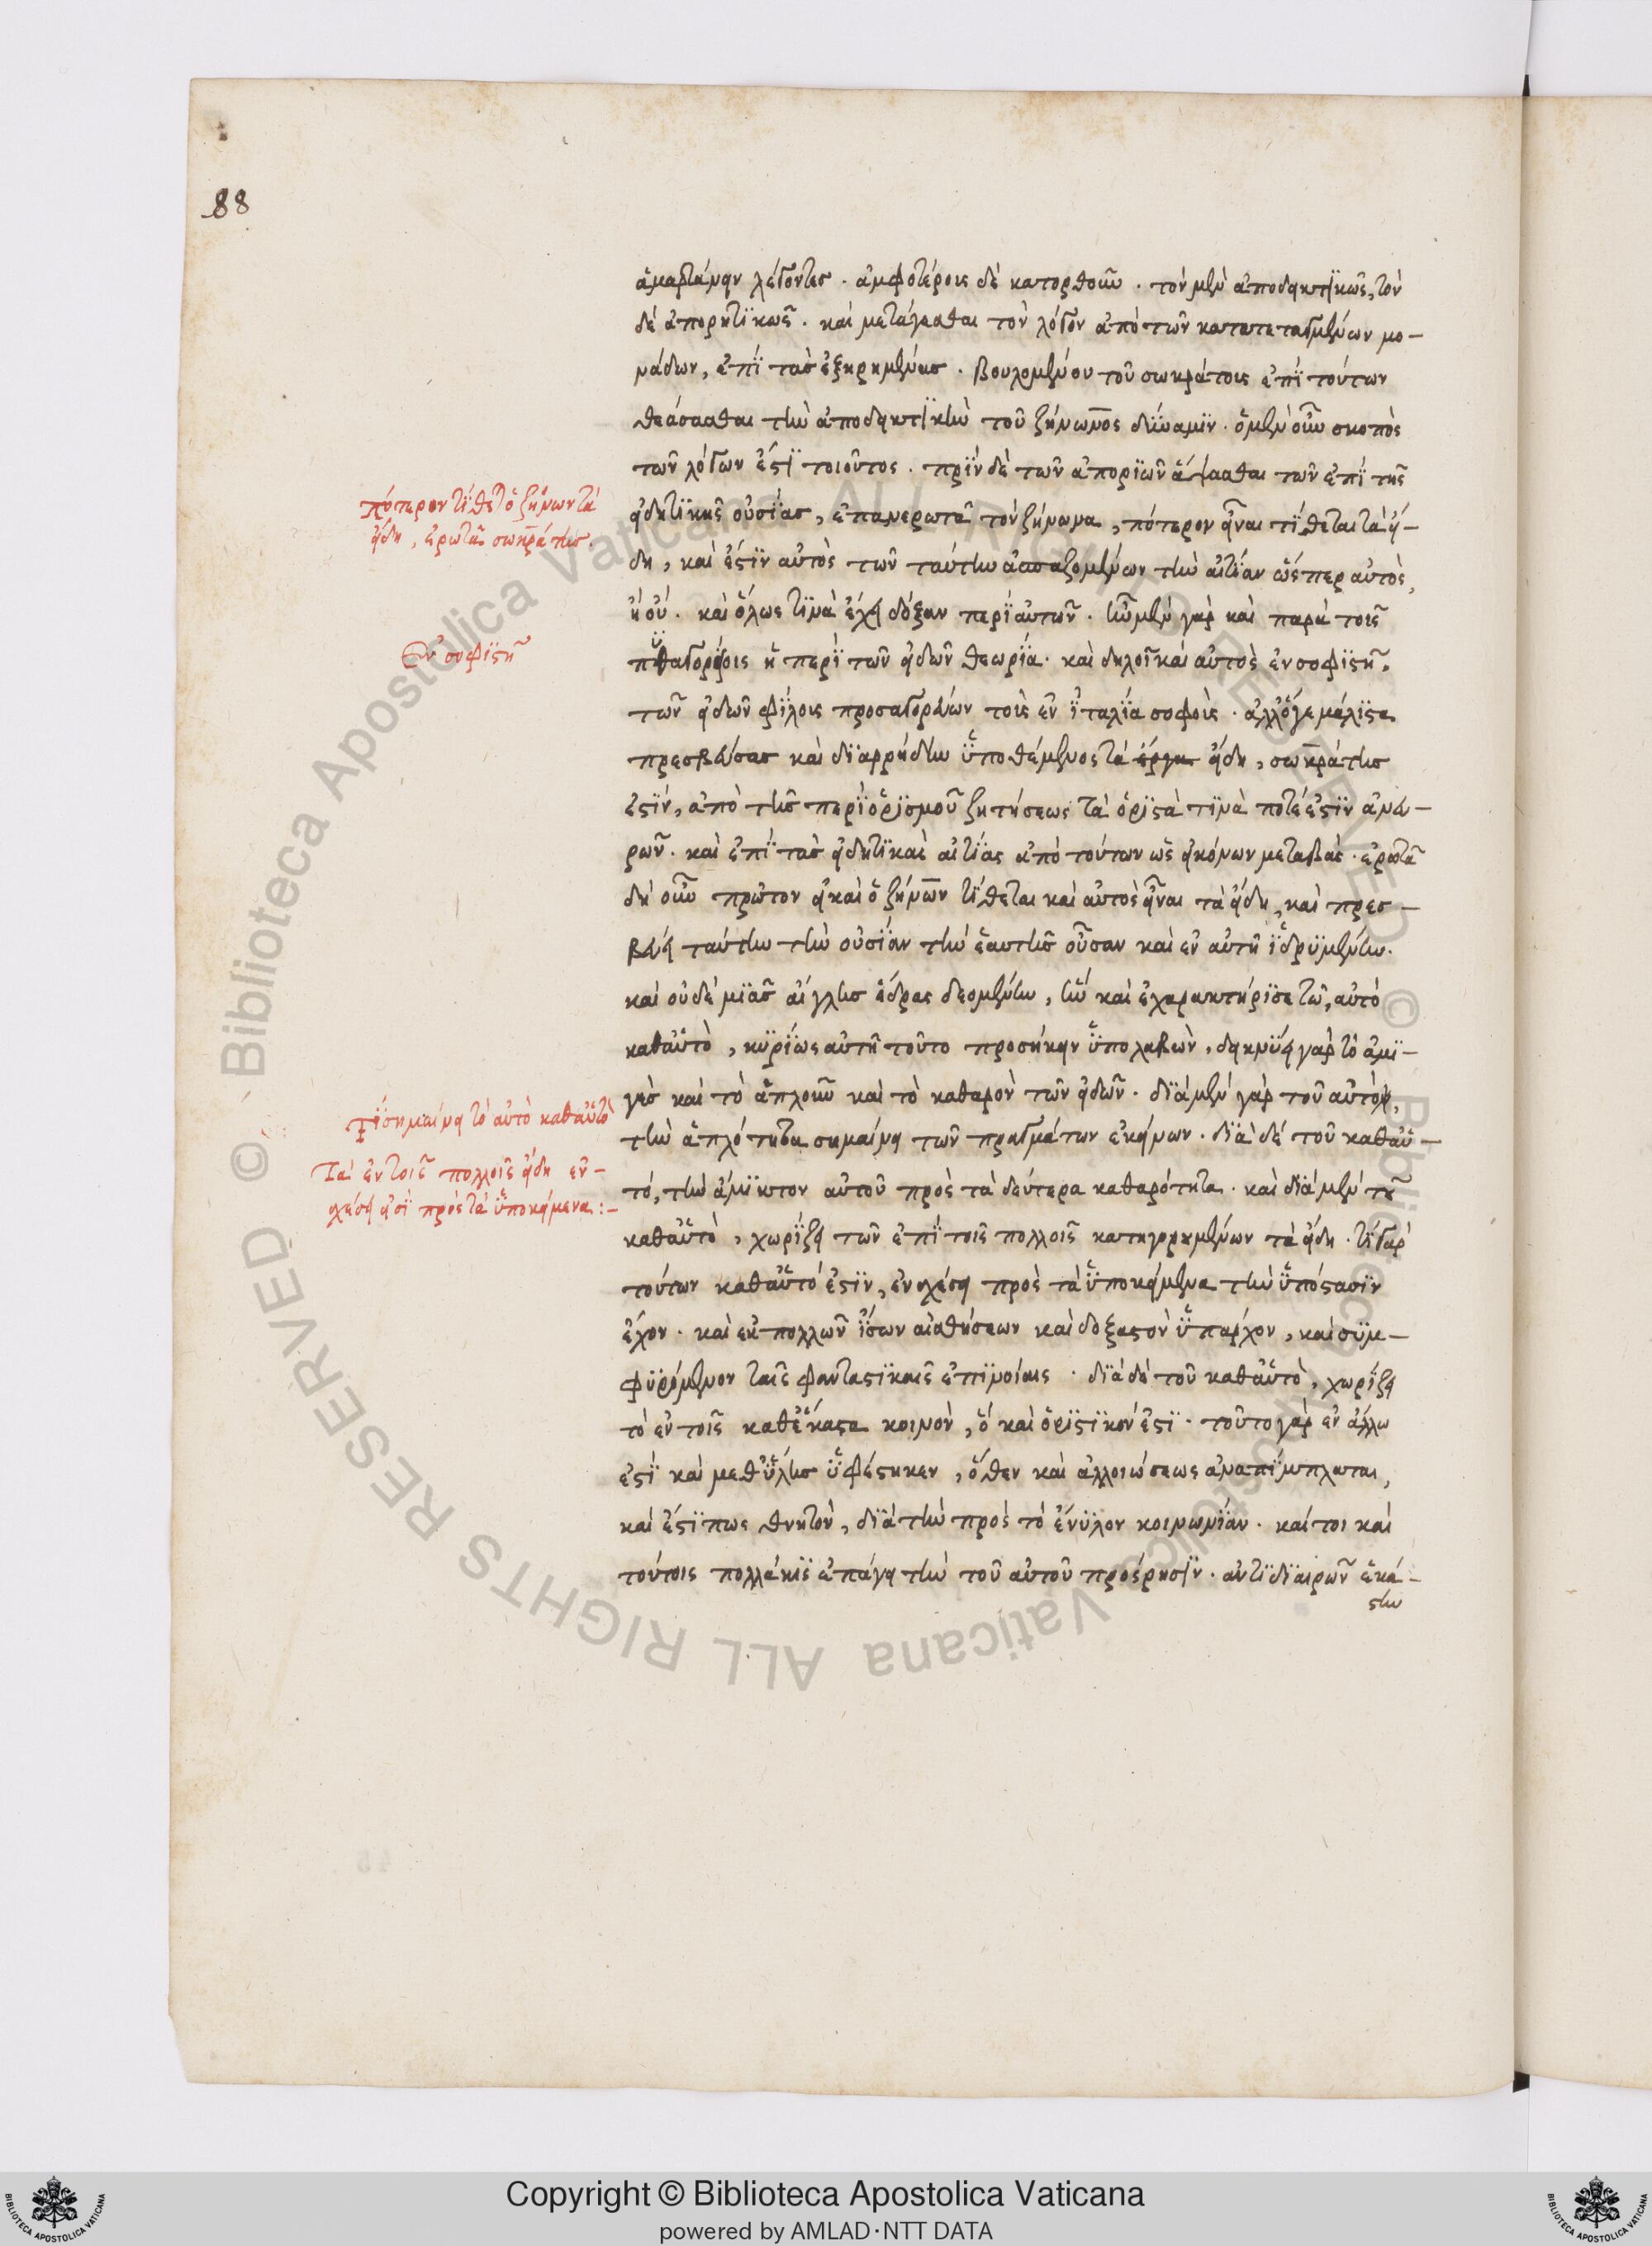 88
ἁμαρτάνειν λέγοντες · ἀμφοτέροις δὲ κατορθοῦν · τὸν μὲν ἀποδεικτικῶς, τὸν
δὲ ἀπορητικῶς · καὶ μετάγεσθαι τὸν λόγον ἀπὸ τῶν κατατεταγμένων μο-
νάδων, ἐπὶ τὰς ἐξῃρημένας · βουλομένου τοῦ σωκράτους ἐπὶ τούτων
θεάσασθαι τὴν ἀποδεικτικὴν τοῦ ζήνωνος δύναμιν · ὁ μὲν οὖν σκοπὸς
τῶν λόγων ἐστὶ τοιοῦτος · πρὶν δὲ τῶν ἀποριῶν ἅψασθαι τῶν ἐπὶ τῆς
πότερον τίθετ ὁ ζήνων τὰ
εἴδη, ἐρωτᾶ σωκράτης.
εἰδητικῆς οὐσίας, ἐπανερωτᾶ τὸν ζήνωνα, πότερον εἶναι τίθεται τὰ εἴ-
δη, καὶ ἐστὶν αὐτὸς τῶν ταύτην ἀσπαζομένων τὴν αἰτίαν ὥσπερ αὐτὸς,
ἢ οὔ · καὶ ὅλως τινὰ ἔχει δόξαν περὶ αὐτῶν · ἦν μὲν γὰρ καὶ παρὰ τοῖς
Ἐν σοφιστῆ
πυθαγορείοις ἡ περὶ τῶν εἰδῶν θεωρία · καὶ δηλοῖ καὶ αὐτὸς ἐν σοφιστῆ.
τῶν εἰδῶν φίλους προσαγορεύων τοὺς ἐν ἰταλία σοφοὺς · ἀλλ' ὅγε μάλιστα
πρεσβεύσας καὶ διαρρήδην ὑποθέμενος τὰ ἔργα εἴδη, σωκράτης
ἐστὶν, ἀπὸ τῆς περὶ ὁρισμοῦ ζητήσεως τὰ ὁριστὰ τινὰ ποτέ ἐστὶν ἀνευ-
ρὼν · καὶ ἐπὶ τὰς εἰδητικὰς αἰτίας ἀπὸ τούτων ὡς εἰκόνων μεταβὰς · ἐρωτᾶ
δὴ οὖν πρῶτον εἰ καὶ ὁ ζήνων τίθεται καὶ αὐτὸς εἶναι τὰ εἴδη, καὶ πρεσ-
βεύει ταύτην τὴν οὐσίαν τὴν ἑαυτῆς οὖσαν καὶ ἐν αὐτῆ ἱδρυμένην.
καὶ οὐδὲ μιᾶς αἴγλης ἕδρας δεομένην, ἣν καὶ ἐχαρακτήρισε τῶ, αὐτὸ
καθ' αὑτὸ, κυρίως αὐτῆ τοῦτο προσήκειν ὑπολαβὼν, δεικνύει γὰρ τὸ ἀμι-
γὲς καὶ τὸ ἁπλοῦν καὶ τὸ καθαρὸν τῶν εἰδῶν · διὰ μὲν γὰρ τοῦ αὐτὸ,
τί σημαίνει τὸ αὐτὸ καθ' αὑτὸ
τὴν ἁπλότητα σημαίνει τῶν πραγμάτων ἐκείνων · διὰ δὲ τοῦ καθ' αὑ-
Τὰ ἐν τοῖς πολλοῖς εἴδη ἐν-
σχέσει εἰσὶ πρὸς τὰ ὑποκείμενα :-
τό, τὴν ἄμικτον αὐτοῦ πρὸς τὰ δεύτερα καθαρότητα · καὶ διὰ μὲν τοῦ
καθ' αὑτὸ, χωρίζει τῶν ἐπὶ τοῖς πολλοῖς κατηγορημένων τὰ εἴδη · τί γὰρ
τούτων καθ' αὑτό ἐστιν, ἐν σχέσει πρὸς τὰ ὑποκείμενα τὴν ὑπόστασιν
ἔχον · καὶ ἐκ πολλῶν ἴσων αἰσθήσεων καὶ δοξαστὸν ὑπάρχον, καὶ συμ-
φυρόμενον ταῖς φανταστικαῖς ἐπινοίαις · διὰ δὲ τοῦ καθ' αὑτὸ, χωρίζει
τὸ ἐν τοῖς καθ' ἕκαστα κοινὸν, ὃ καὶ ὁριστικόν ἐστι · τοῦτο γὰρ ἐν ἄλλω
ἐστὶ καὶ μεθ' ὕλης ὑφέστηκεν, ὅθεν καὶ ἀλλοιώσεως ἀναπίμπλαται,
καὶ ἐστί πως θνητὸν, διὰ τὴν πρὸς τὸ ἔνυλον κοινωνίαν · καίτοι καὶ
τούτοις πολλάκις ἐπάγει τὴν τοῦ αὐτοῦ πρόσρησιν · ἀντιδιαιρῶν ἑκά-
στω